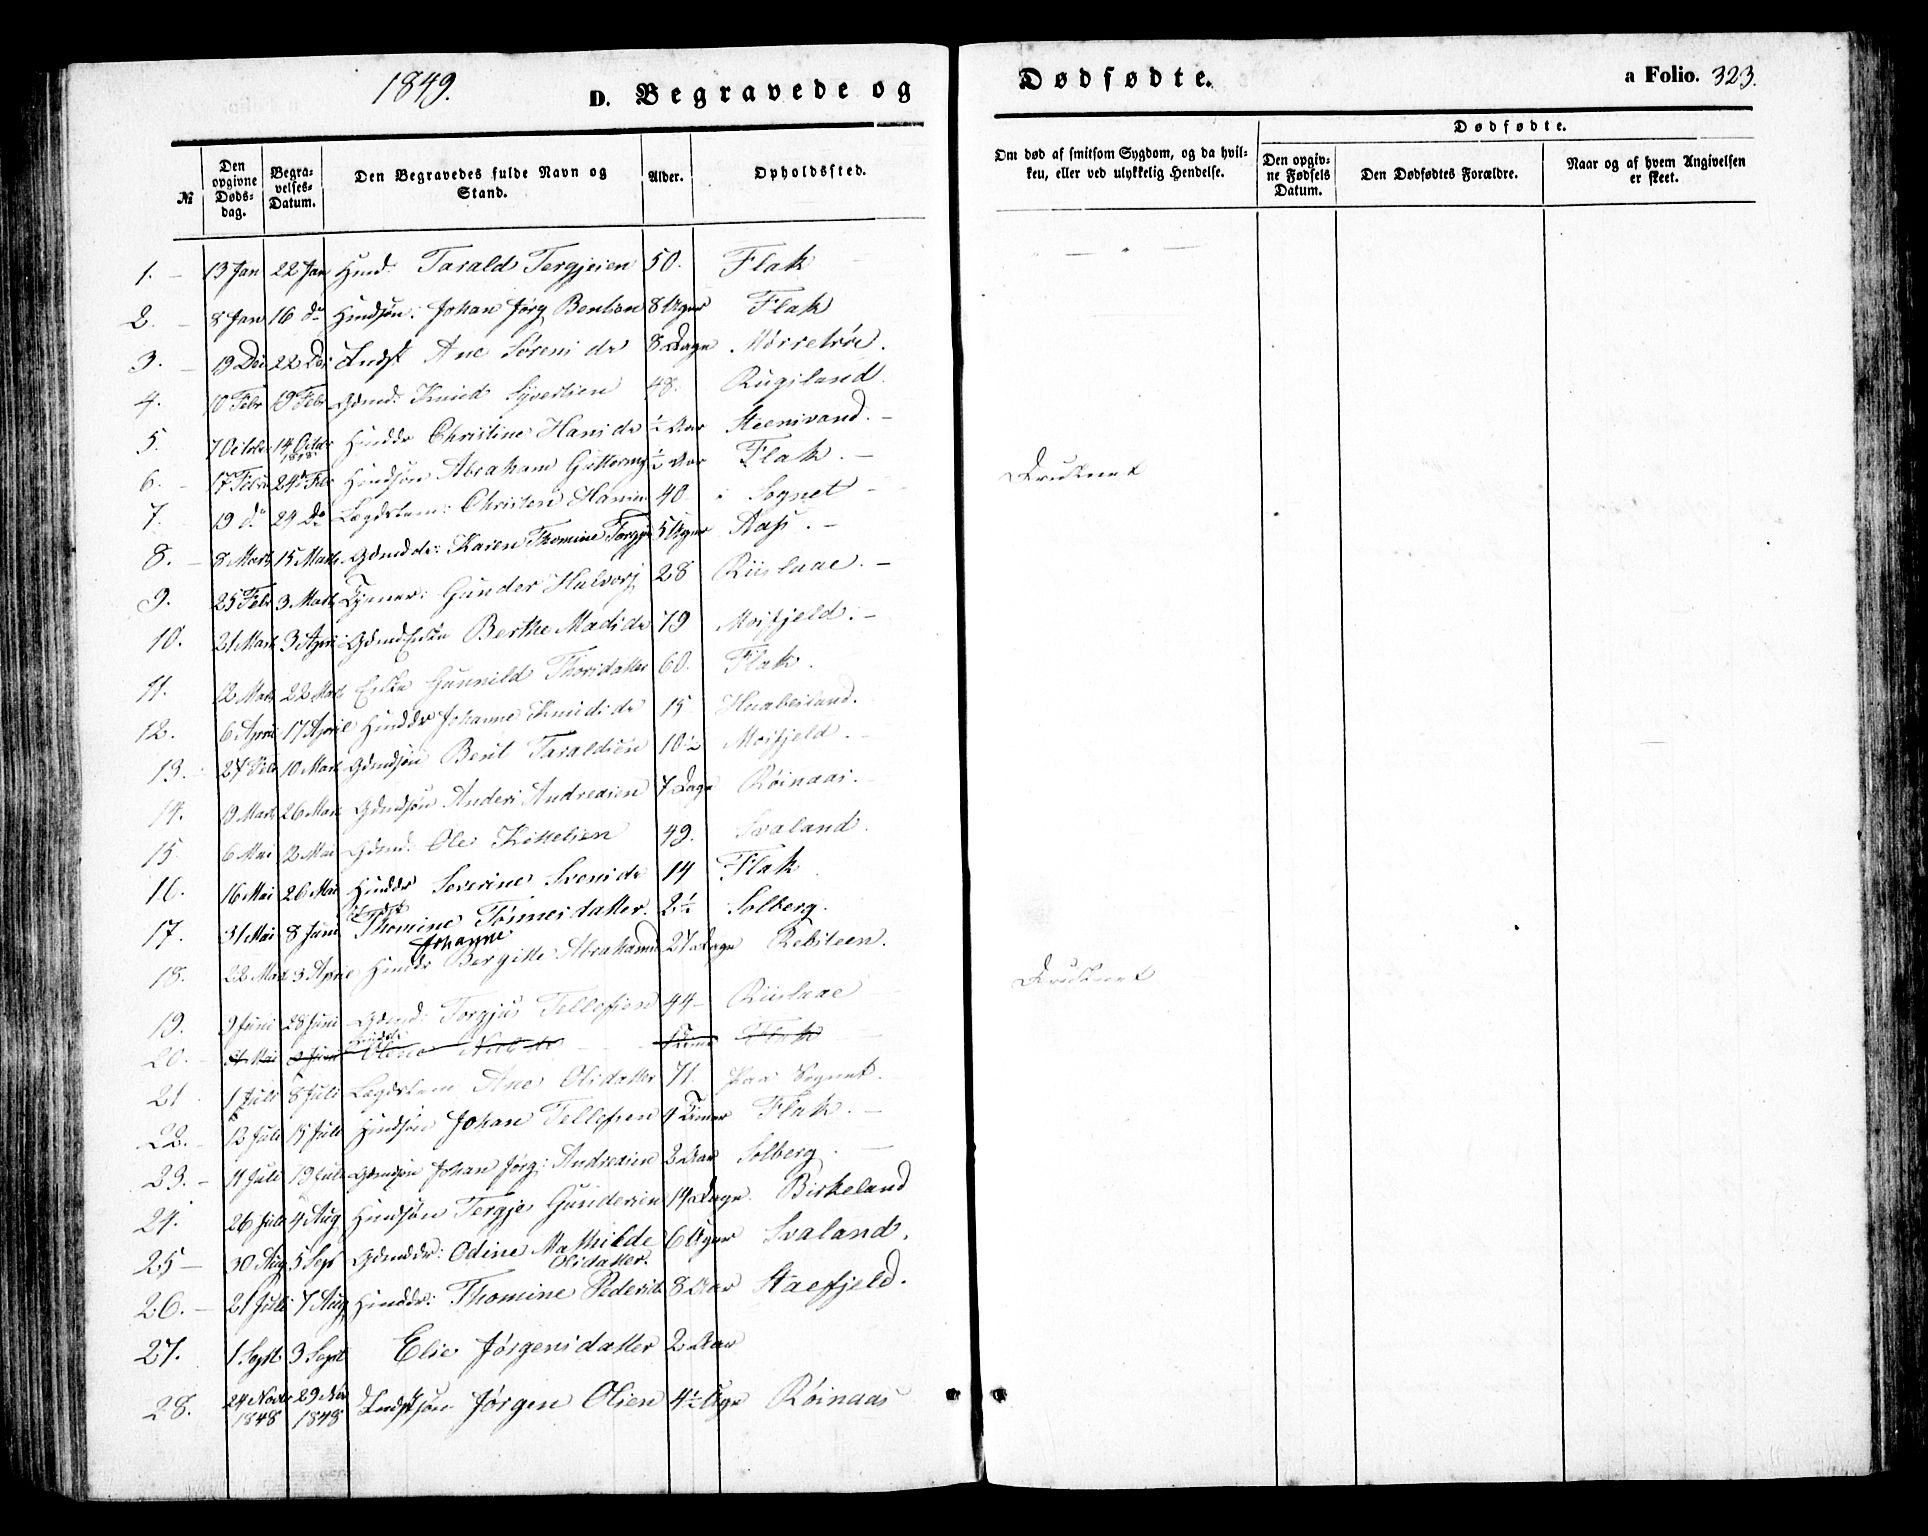 1849.
D. Begravede og
Dødfødte.
a Folio. 323.
№
Den opgivne Døds-dag.
Begra-velses-Datum.
Den Begravedes fulde Navn og Stand.
Alder.
Opholdssted.
Om død af smitsom Sygdom, og da hvil-ken, eller ved ulykkelig Hendelse.
Dødfødte.
Den opgiv-ne Fødsels Datum.
Den Dødfødtes Forældre.
Naar og af hvem Angivelsen er skeet.
1. 13 Jan 22 Jan Hmd. Tarald Tergjesen 50. Flak
2. 8 Jan 16 do Hmdsøn: Johan Jørg Bentsen 8 Uger Flak
3. 19 Dec 22 Dec Indst Ane Sørens dr 8 Dage Mørretröe.
4. 10 Febr 19 Febr Gdmd. Knud Syvertsen 48. Rugsland.
5. 7 Octobr 14 Octobr 1848 Hmddr Christine Hans dr ½ Aar Steensvand.
6. 17 Febr 24 Febr Hmdsøn Abraham ½ Aar Flak.
7. 19 do 24 do Lægdslem: Christen Hansen 40 i Sognet
8. 8 Marts 15 Marts Gdmddr: Karen Thomine Torgjs 5 Uger Aas.
9. 25 Febr 3 Marts Gunder Halvors 28 Riislaae.
10. 21 Mart 3 April GdmdEnke Berthe Mads dr 79 Mosfjeld.
11. 12 Marts 22 Marts Enke Gunnild Thorsdatter 60. Flak.
12. 6 April 17 April Hmddr Johanne Knuds dr 15 Haabesland.
13. 27 Febr 10 Mart Gdmdsøn Bent Taraldsen 10½ Mosfjeld.
14. 19 Mart 26 Mart Gdmdsøn Anders Andreasen 7 Dage Røinaas.
15 6 Mai 12 Mai Gdmd. Ole Kittelsen 49. Svaland.
16. 16 Mai 26 Mai Hmddr Severine Svens dr 14 Flak.
17. 31 Mai 8 Juni Thomine Tønnesdatter. 2½ Solberg.
Johanne
18. 22 Mart 3 April Hmddr Bergitte Abrahamsd 24 Dage Rebsteen. Druknet
19. 9 Juni 28 Juni Gdmd. Torgjus Tellefsen 44 Riislaae
20. 31 Mai Olene Niels dr Flak
21 1 Juli 8 Juli Lægdslem Ane Olsdatter 71. paa Sognet.
22. 12 Juli 15 Juli Hmdsøn Johan Tellefsen 9 Timer Flak.
23. 11 Juli 19 Juli Gdmdsøn Johan Jørg: Andreasen 2 Aar Solberg.
24. 26 Juli 4 Aug Hmdsøn Tergje Gundersen 14 Dage. Birkeland
25 30 Aug 5 Sept Gdmddr: Odine Mathilde Olsdatter. 6 Uger Svaland.
26. 21 Juli 7 Aug Hmddr: Thomine Peders dr 8 Aar Staefjeld.
27. 1 Sept 3 Sept Elie Jørgensdatter 2 Aar
28. 24 Novbr 1848 29 Nov 1848 Indstsøn Jørgen Olsen 4½ Uge Røinaas
Druknet